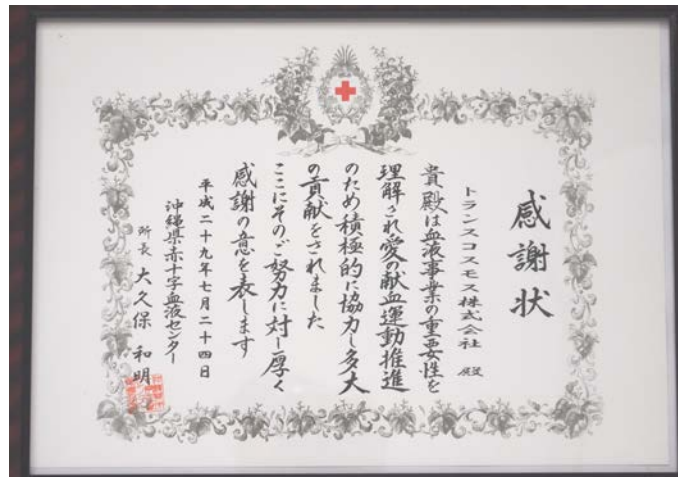 感謝状
トランスコスモス株式会社 殿
貴殿は血液事業の重要性を
理解され愛の献血運動推進
のため積極的に協力し多大
の貢献をされました
ここにそのご努力に対し厚く
感謝の意を表します
平成二十九年七月二十四日
沖縄県赤十字血液センター
所長 大久保 和明